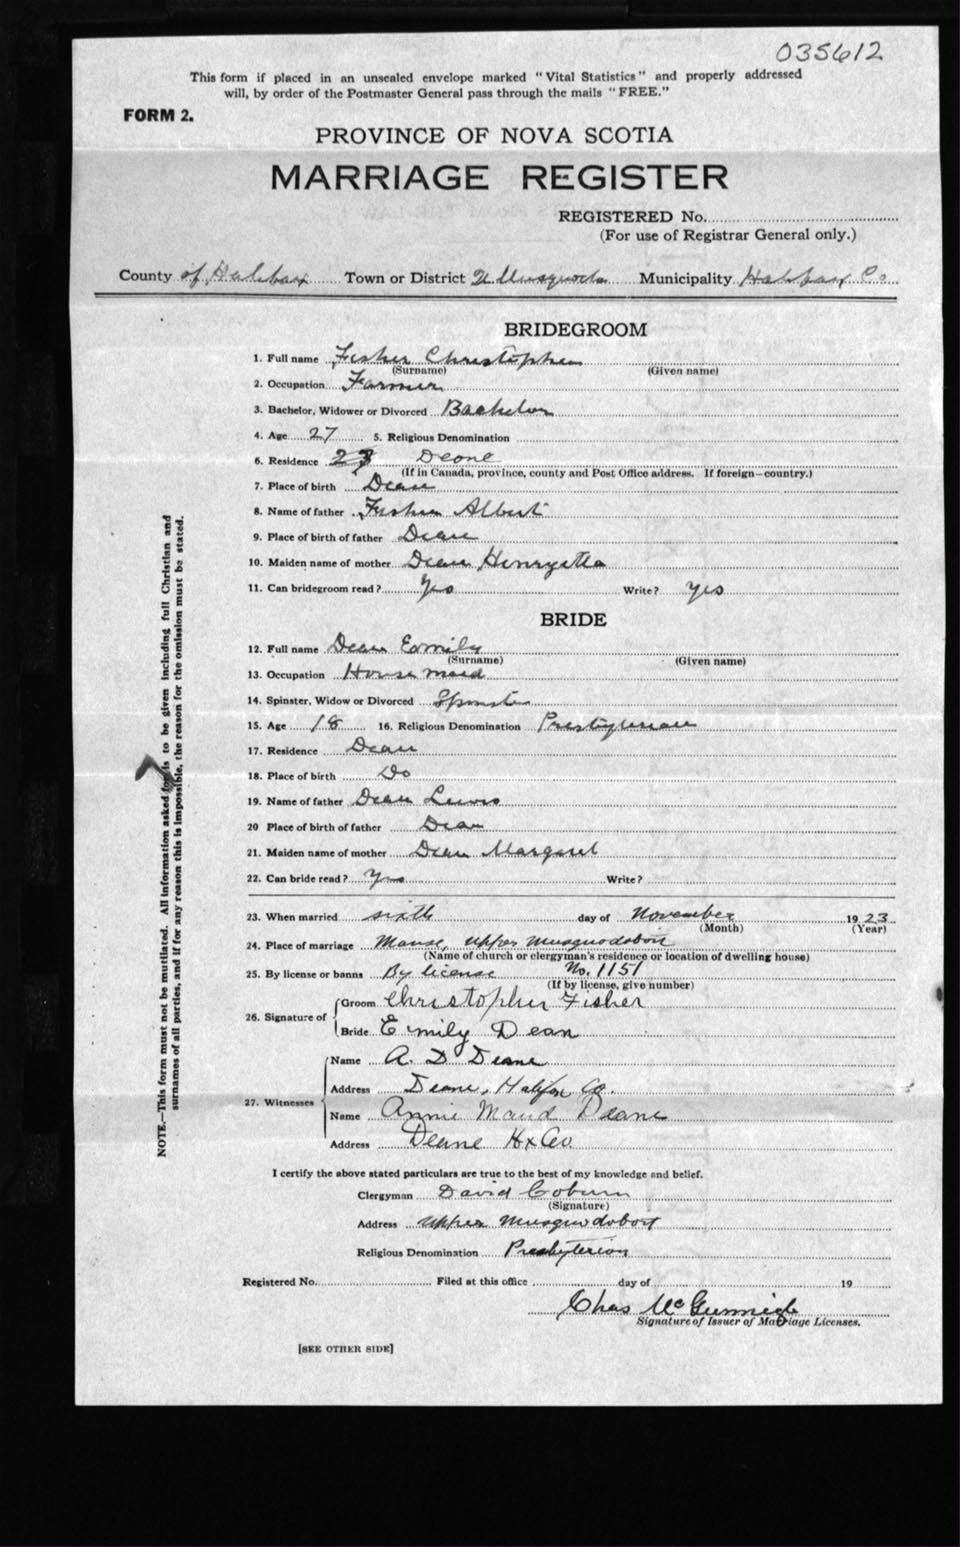 035612
This form if placed in an unsealed envelope marked "Vital Statistics" and properly addressed
will, by order of the Postmaster General pass through the mails "FREE."
FORM 2.
PROVINCE OF NOVA SCOTIA
MARRIAGE REGISTER
REGISTERED No.
(For use of Registrar General only.)
County of Halifax Town or District U Musquodo Municipality Halifax Co.
BRIDEGROOM
1. Full name Fisher Christopher
(Surname) (Given name)
2. Occupation Farmer
3. Bachelor, Widower or Divorced Bachelor
4. Age 27 5. Religious Denomination
6. Residence Deone
(If in Canada, province, county and Post Office address. If foreign—country.)
7. Place of birth Dean
8. Name of father Fisher Albert
9. Place of birth of father Dean
10. Maiden name of mother Dean Henryetta
11. Can bridegroom read? Yes Write? Yes
BRIDE
12. Full name Dean Eamily
(Surname) (Given name)
13. Occupation House maid
14. Spinster, Widow or Divorced Spinster
15. Age 18 16. Religious Denomination Presbyterian
17. Residence Dean
18. Place of birth Do
19. Name of father Dean Lewis
20 Place of birth of father Dean
21. Maiden name of mother Dean Margaret
22. Can bride read? Yes Write?
23. When married sixth day of November 1923
(Month) (Year)
24. Place of marriage Manse, Upper Musquodoboit
(Name of church or clergyman's residence or location of dwelling house)
25. By license or banns By license No. 1151
(If by license, give number)
26. Signature of Groom Christopher Fisher
Bride Emily Dean
27. Witnesses Name A. D Deane
Address Deane, Halifax Co.
Name Annie Maud Deane
Address Deane Hx Co.
I certify the above stated particulars are true to the best of my knowledge and belief.
Clergyman David Coburn
(Signature)
Address Upper Musquodoboit
Religious Denomination Presbyterion
Registered No. Filed at this office day of 19
Chas McGunnigle
Signature of Issuer of Marriage Licenses.
[SEE OTHER SIDE]
NOTE.—This form must not be mutilated. All information asked for is to be given including full Christian and
surnames of all parties, and if for any reason this is impossible, the reason for the omission must be stated.